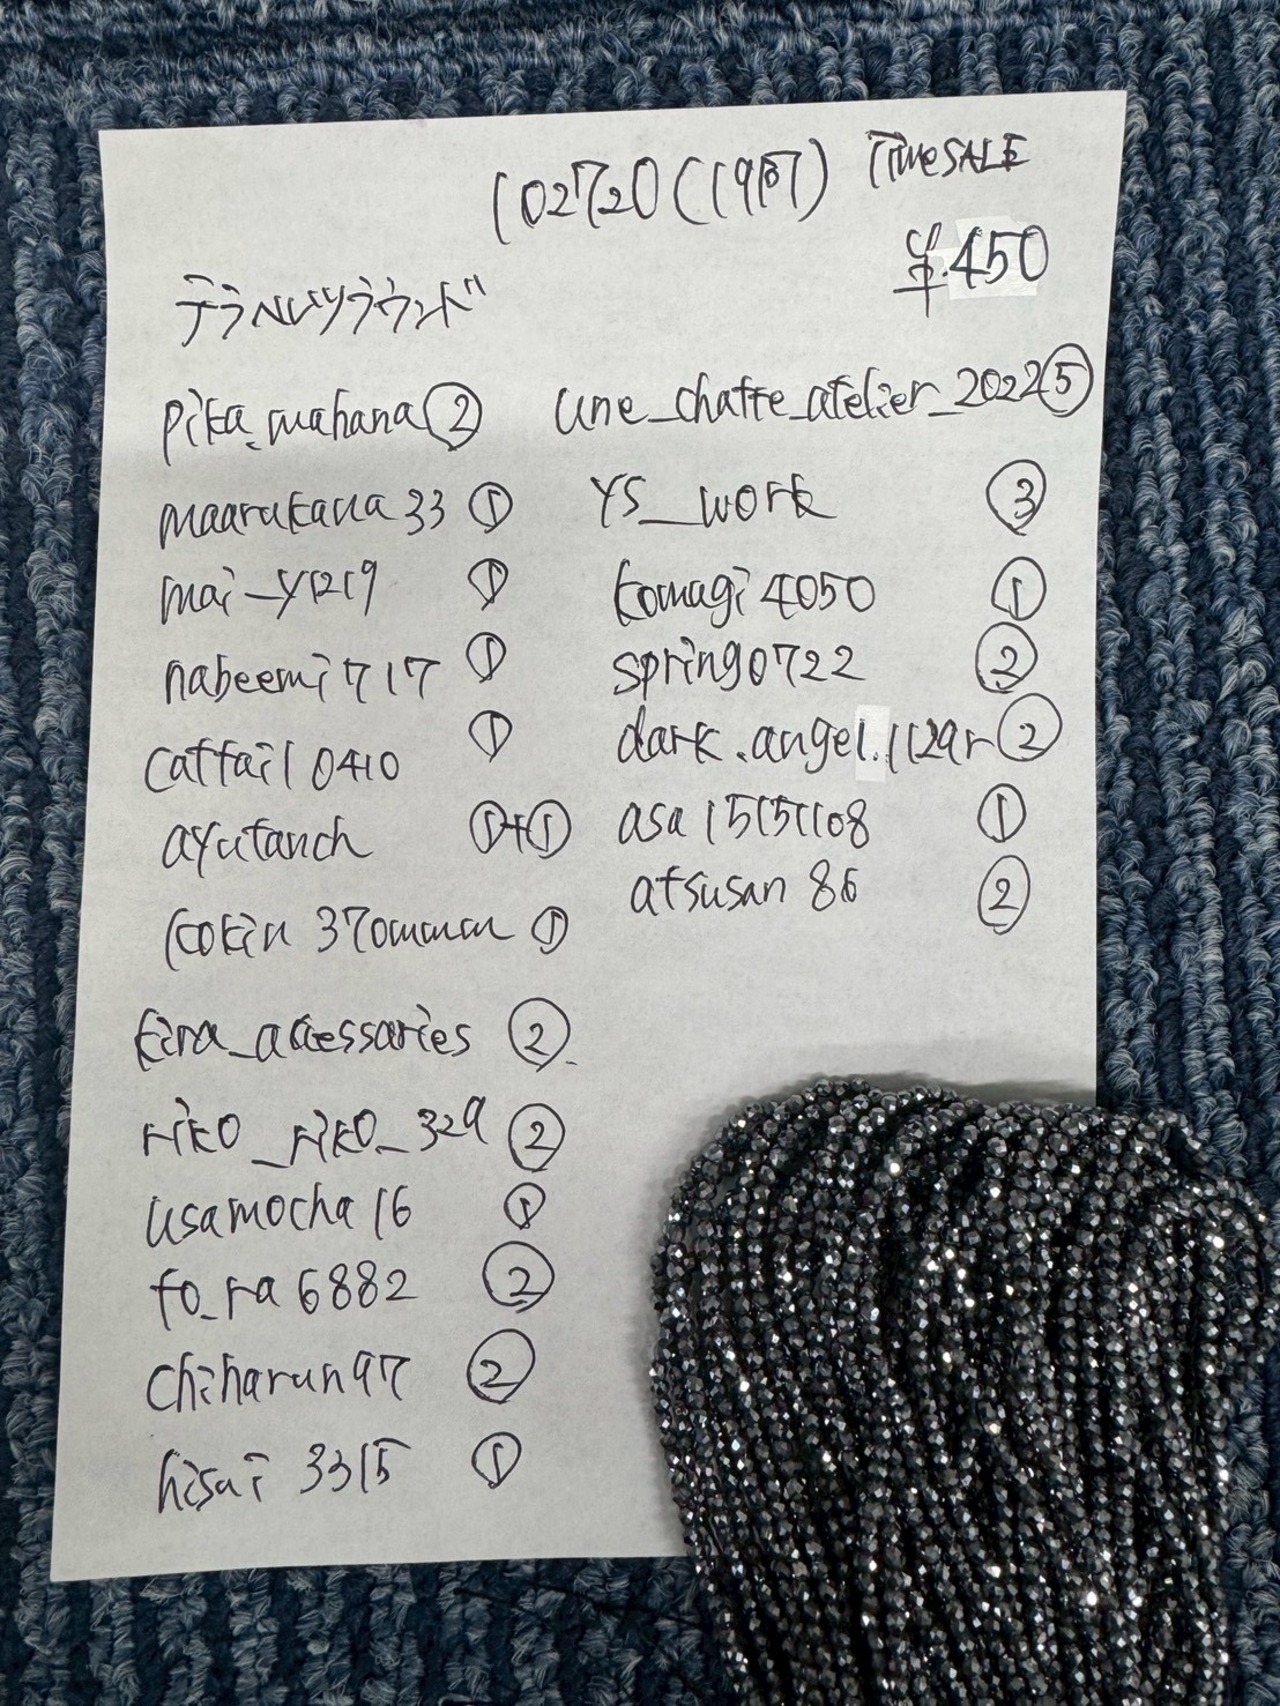 102720(19時) TimeSALE
¥450
テラヘルツラウンド
pika.mahana ②
maarukana33 ①
mai_y1219 ①
nabeemi717 ①
cattail0410 ①
ayutanch ①+①
kokin370mmm ①
kira_accessaries ②
riko_riko_329 ②
usamocha16 ①
fo_ra6882 ②
chiharun97 ②
hisai3315 ①
une_chatte_atelier_2022 ⑤
YS_work ③
komagi4050 ①
spring0722 ②
dark.angel.1129r ②
asa15151108 ①
atsusan86 ②